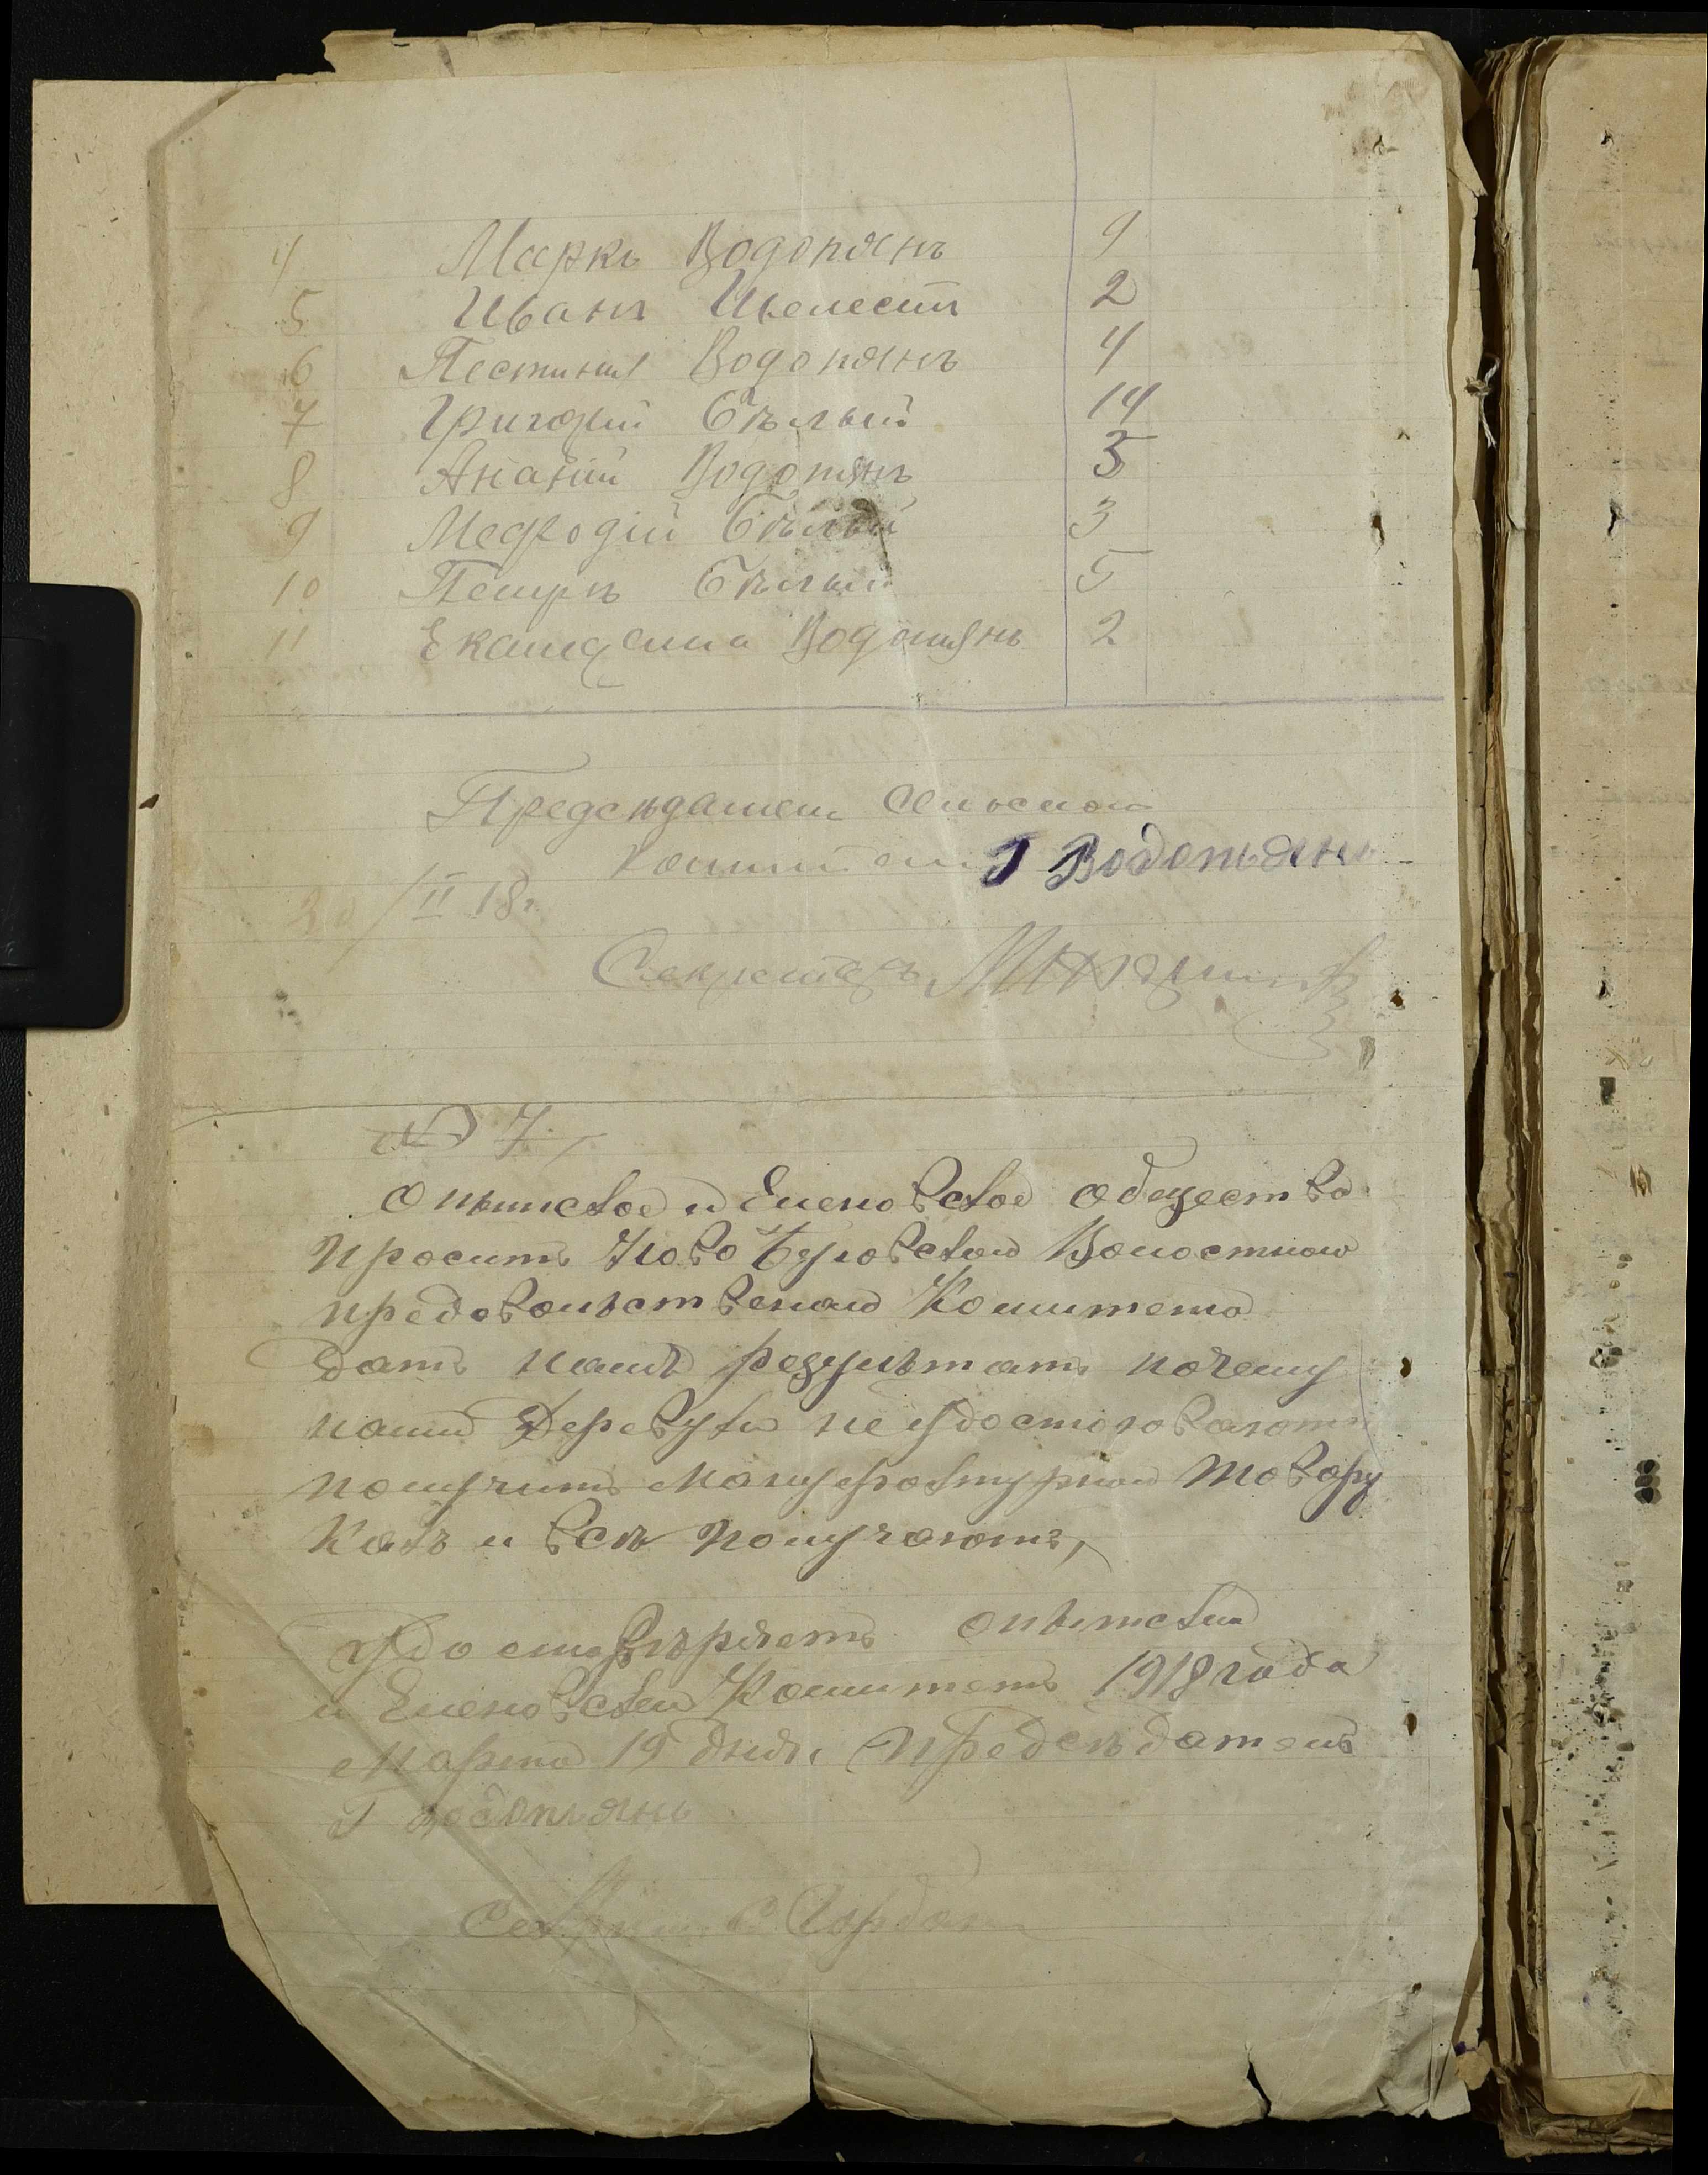 4 Маркъ Водопянъ 9
5 Иванъ Шелестъ 2
6 Пестиния Водопянъ 4
7 Григорій Бѣлый 14
8 Ананій Водопянъ 5
9 Мефодій Бѣлый 3
10 Петръ Бѣлый 5
11 Екатерина Водопянъ 2
Предсѣдатель Сельскаго
Комитета Г Водопьянъ
30/II 18г.
Секретарь
№ 7
и Еленовское общество
просить Ново Буговской Волостной
продовольственой Комитета
дать намъ результатъ почему
наши Деревуки не удостоюваютъ
получить Мануфактурной товару
Какъ и Всѣ получаютъ,
Удостовѣряетъ
и Еленовскій Комитетъ 1918 года
Марта 19 дня, Предсѣдатель
Г Водопьянъ